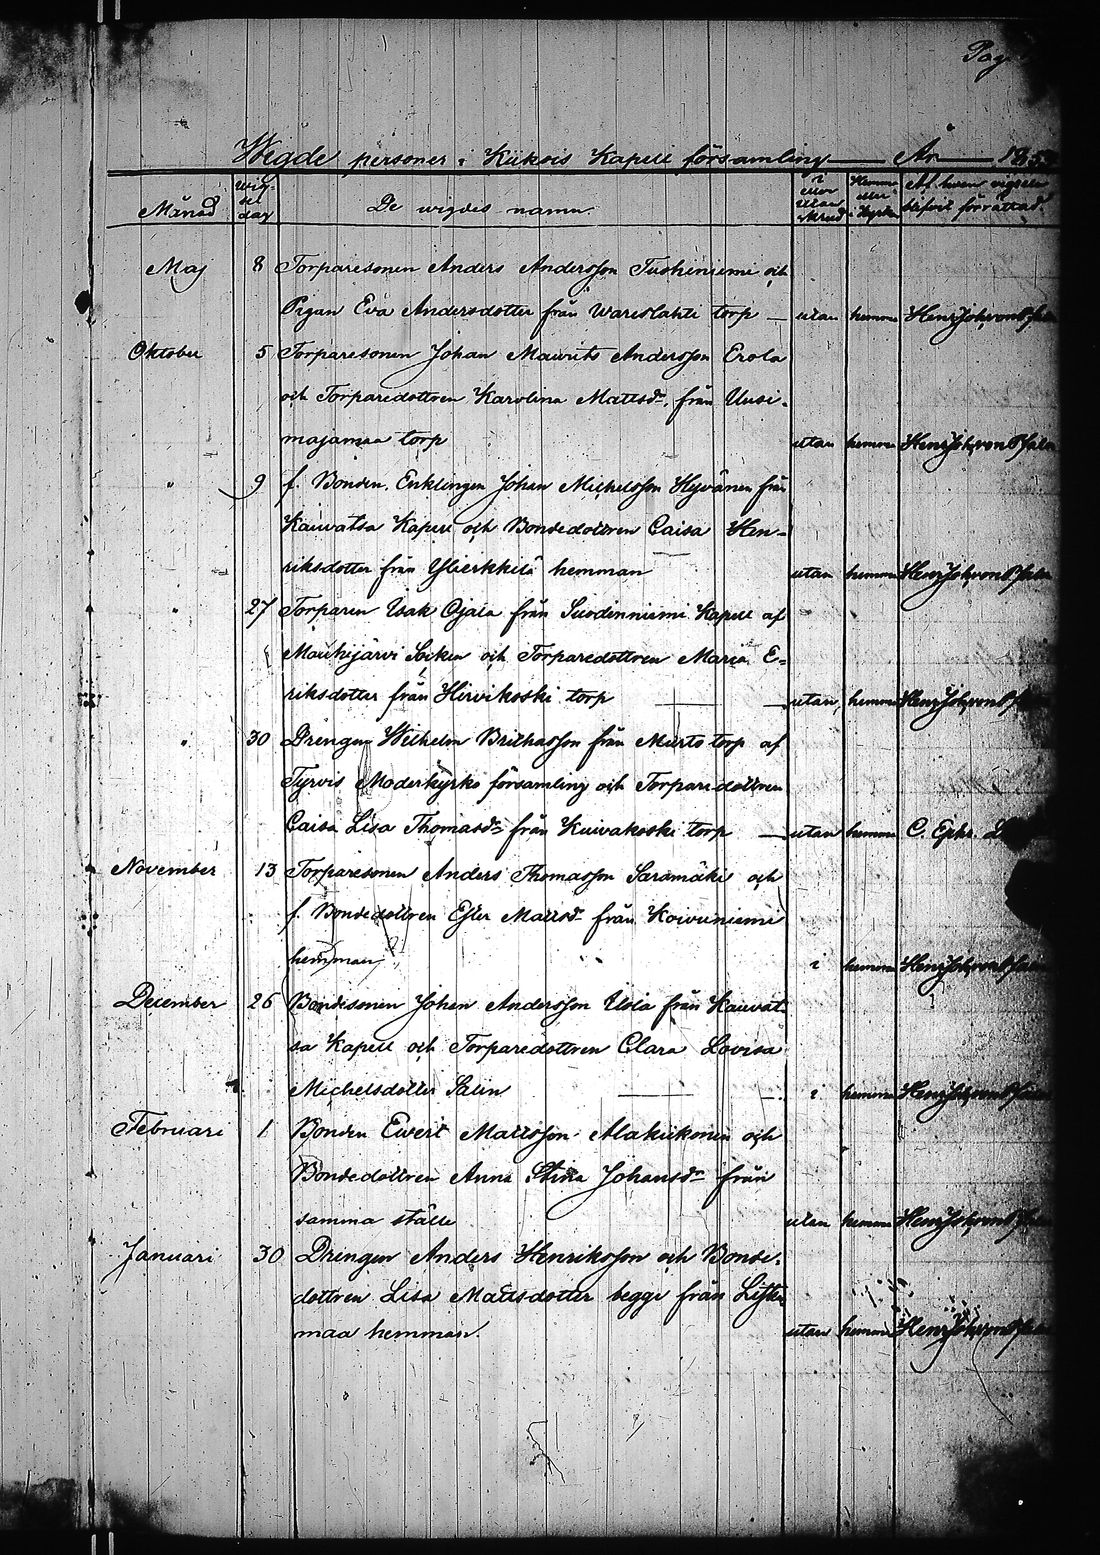 Pag
Wigde personer i Kiikois Kapell församling År 1853
Månad Wig-sel dag De wigdes namn. i eller utan skrud Hemma eller i Kyrka Af hwem vigseln blifvit förrättad.
Maj 8 Torparesonen Anders Andersson Tuohiniemi och
Pigan Eva Andersdotter från Wareslahti torp — utan hemma Henr Joh von Pfaler
Oktober 5 Torparesonen Johan Maurits Andersson Erola
och Torparedottren Karolina Mattsdr, från Uusi-
majamaa torp utan hemma Henr Joh von Pfaler
" 9 f. Bonden, Enklingen Johan Michelsson Hyvänen från
Kauvatsa Kapell och Bondedottren Caisa Hen-
riksdotter från Ylierkkilä hemman utan hemma Henr Joh von Pfaler
" 27 Torparen Isak Ojala från Suodinniemi Kapell af
Mouhijärvi Socken och Torparedottren Maria E-
riksdotter från Hirvikoski torp — utan hemma Henr Joh von Pfaler
" 30 Drengen Wilhelm från torp af
Tyrvis Moderkyrko församling och Torparedottren
Caisa Lisa Thomasdr från Kuivakoski torp — utan hemma C. Ephr.
November 13 Torparesonen Anders Thomasson Saramäki och
f. Bondedottren Ester Mattsdr från Koivuniemi
hemman i hemma Henr Joh von Pfaler
December 26 Bondesonen Johan Andersson Uola från Kauvat-
sa Kapell och Torparedottren Clara Lovisa
Michelsdotter Salin — i hemma Henr Joh von Pfaler
Februari 1 Bonden Ewert Mattsson Alakiikonen och
Bondedottren Anna Stina Johansdr från
samma ställe utan hemma Henr Joh von Pfaler
Januari 30 Drengen Anders Henriksson och Bonde-
dottren Lisa Mattsdotter begge från
maa hemman. utan hemma Henr Joh von Pfaler